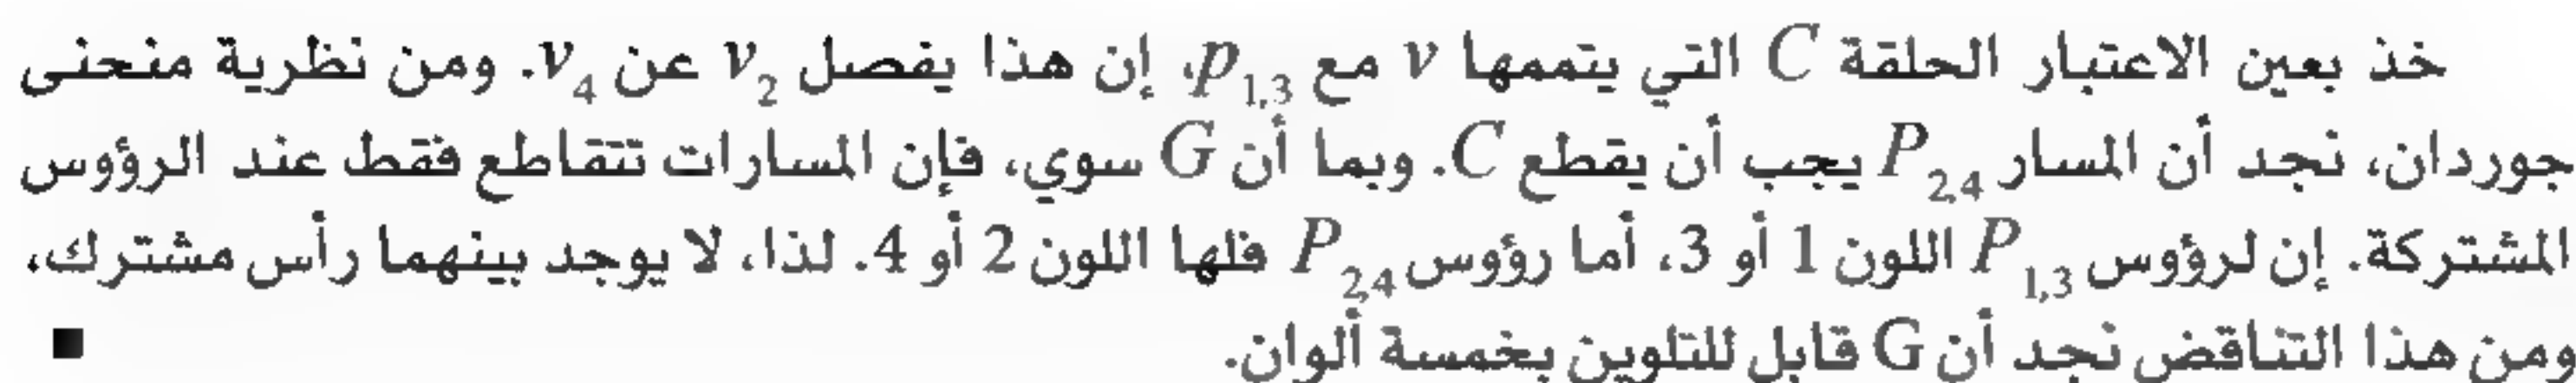 خذ بعين الاعتبار الحلقة C التي يتممها v مع p₁,₃، إن هذا يفصل v₂ عن v₄. ومن نظرية منحنى
جوردان، نجد أن المسار P₂,₄ يجب أن يقطع C. وبما أن G سوي، فإن المسارات تتقاطع فقط عند الرؤوس
المشتركة. إن لرؤوس P₁,₃ اللون 1 أو 3، أما رؤوس P₂,₄ فلها اللون 2 أو 4. لذا، لا يوجد بينهما رأس مشترك،
ومن هذا التناقض نجد أن G قابل للتلوين بخمسة ألوان. ■